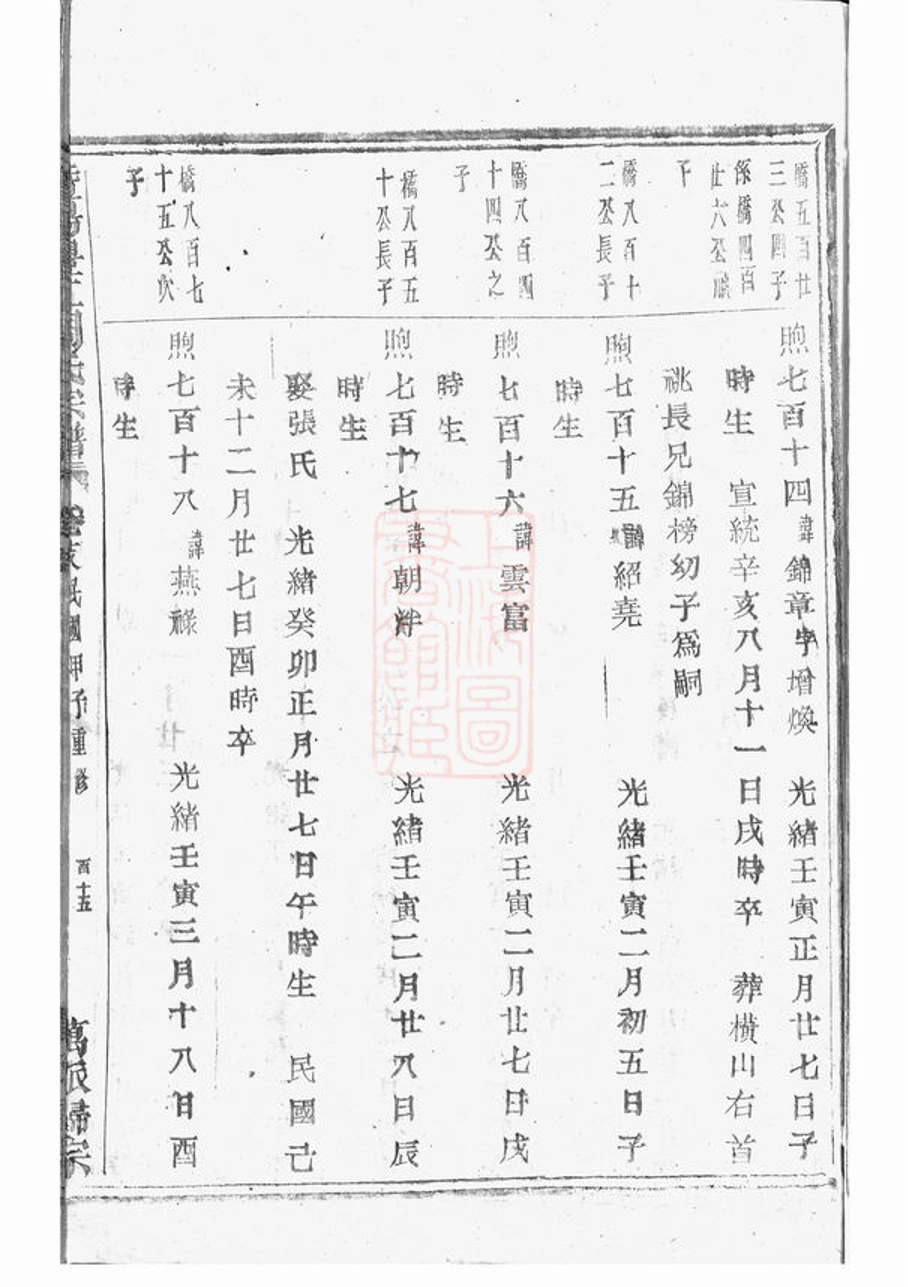 橋五百廿
三公四子
係橋四百
廿六公祧
下
煦七百十四諱錦章字增煥 光緒壬寅正月廿七日子
時生 宣統辛亥八月十一日戌時卒 葬橫山右首
祧長兄錦榜幼子為嗣
橋八百十
二公長子
煦七百十五諱紹堯 光緒壬寅二月初五日子
時生
橋八百四
十四公之
子
煦七百十六諱雲富 光緒壬寅二月廿七日戌
時生
橋八百五
十公長子
煦七百十七諱朝泮 光緒壬寅二月廿八日辰
時生
娶張氏 光緒癸卯正月廿七日午時生 民國己
未十二月廿七日酉時卒
橋八百七
十五公次
子
煦七百十八諱燕祿 光緒壬寅三月十八日酉
時生
民國甲子重修
百十五
萬派歸宗
上海圖書館